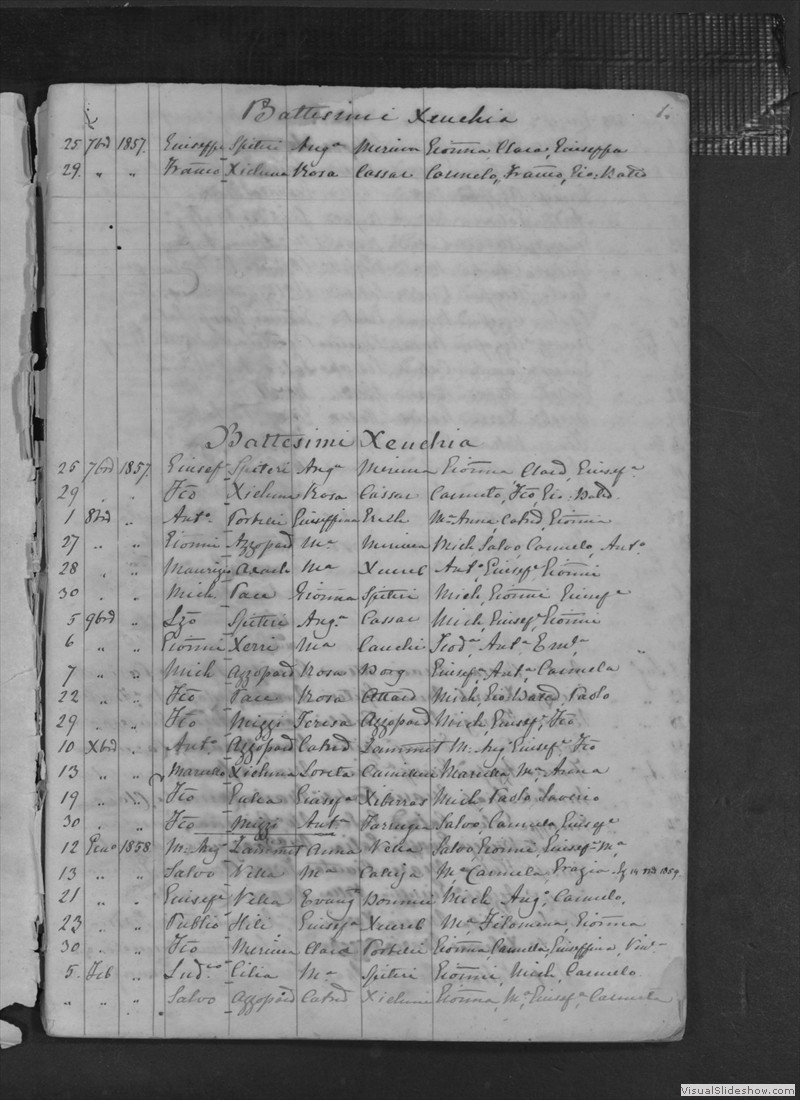 Battesimi Xeuchia 1.
25 7bre 1857. Giuseppe Spiteri Ang.a Merieca Giōnna Clara, Giuseppa
29. " " Franco Xicluna Rosa Cassar Carmelo, Franco, Gio: Batta
Battesimi Xeuchia
25 7bre 1857. Giusep Spiteri Ang.a Giōnna Giusep.a
29 " " Fco Xicluna Rosa Cassar Carmelo, Fco Gio. Batta
1 8bre " Ant.o Portelli Giuseppina M.a Anna Giōnna
27 " " Giōnni Azzopard M.a Mich, Salvo, Carmelo, Ant.o
28 " " Maurizio M.a Xuereb Ant.o Giusep.e Giōnni
30 " " Mich. Pace Giōnna Spiteri Mich, Giōnni Giusep.e
5 9bre " Lzo Spiteri Ang.a Cassar Mich, Giusep.e Giōnni
6 " " Giōnni Xerri M.a Cauchi Ant.a
7 " " Mich Azzopard Rosa Borg Giusep.a Ant.a Carmela
22 " " Fco Pace Rosa Attard Mich, Gio: Paolo
29 " " Fco Mizzi Teresa Azzopard Mich, Giusep.e Fco
10 Xbre " Ant.o Azzopard Zammit M. Ang. Giusep.e Fco
13 " " Xicluna Loreta Camilleri M.a Anna
19 " " Fco Giusep.a Xiberras Mich, Paolo Saverio
30 " " Fco Mizzi Ant.a Farrugia Salvo, Carmelo, Giusep.e
12 Geno 1858. M. Ang. Zammit Anna Vella Salvo, Giōnni, Giusep.
13 " " Salvo Vella M.a Calleja M.a Carmela, Grazia
21 " " Giusep.e Vella Evang. Mich Ang. Carmelo,
23 " " Publio Hili Giusep.a Xuereb M.a Filomena, Giōnna
30 " " Fco Portelli Giōnna, Carmela, Giuseppina,
5. Feb " Lud.co Cilia M.a Spiteri Giōnni, Mich, Carmelo
" " " Salvo Azzopard Xicluna Giōnna, M.a Giusep.a Carmela
VisualSlideshow.com